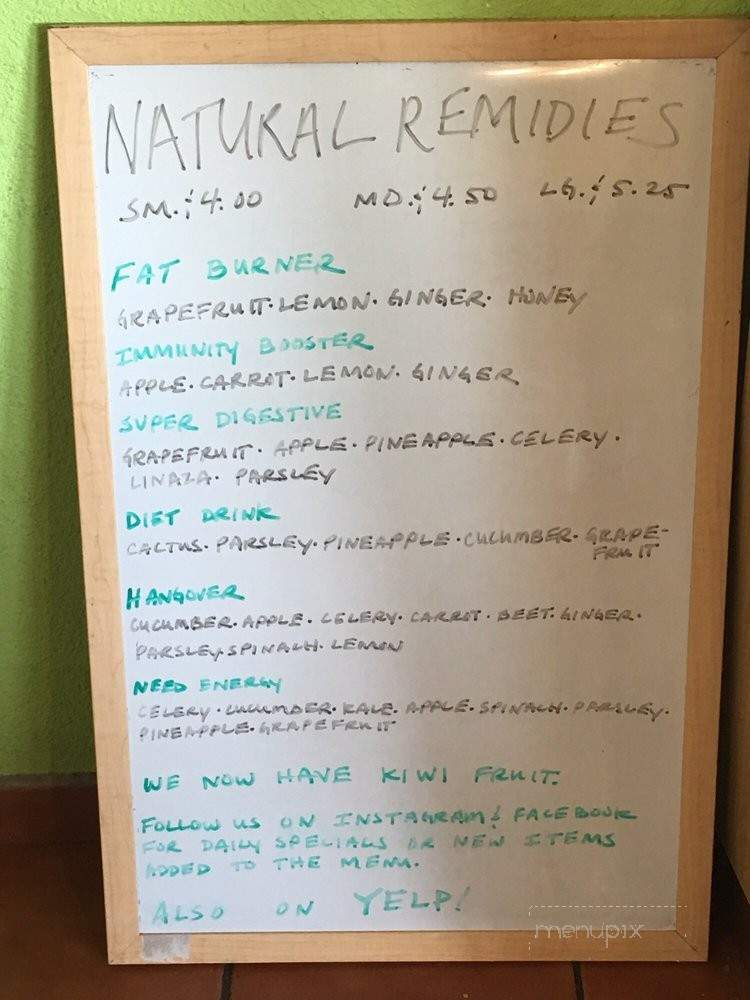 NATURAL REMIDIES
SM. $4.00 MD. $4.50 LG. $5.25
FAT BURNER
GRAPEFRUIT. LEMON. GINGER. HONEY
IMMUNITY BOOSTER
APPLE. CARROT. LEMON. GINGER
SUPER DIGESTIVE
GRAPEFRUIT. APPLE. PINEAPPLE. CELERY.
LINAZA. PARSLEY
DIET DRINK
CACTUS. PARSLEY. PINEAPPLE. CUCUMBER. GRAPE-
FRUIT
HANGOVER
CUCUMBER. APPLE. CELERY. CARROT. BEET. GINGER.
PARSLEY. SPINACH. LEMON
NEED ENERGY
CELERY. CUCUMBER. KALE. APPLE. SPINACH. PARSLEY.
PINEAPPLE. GRAPEFRUIT
WE NOW HAVE KIWI FRUIT.
FOLLOW US ON INSTAGRAM & FACEBOOK
FOR DAILY SPECIALS OR NEW ITEMS
ADDED TO THE MENU.
ALSO ON YELP!
menupix